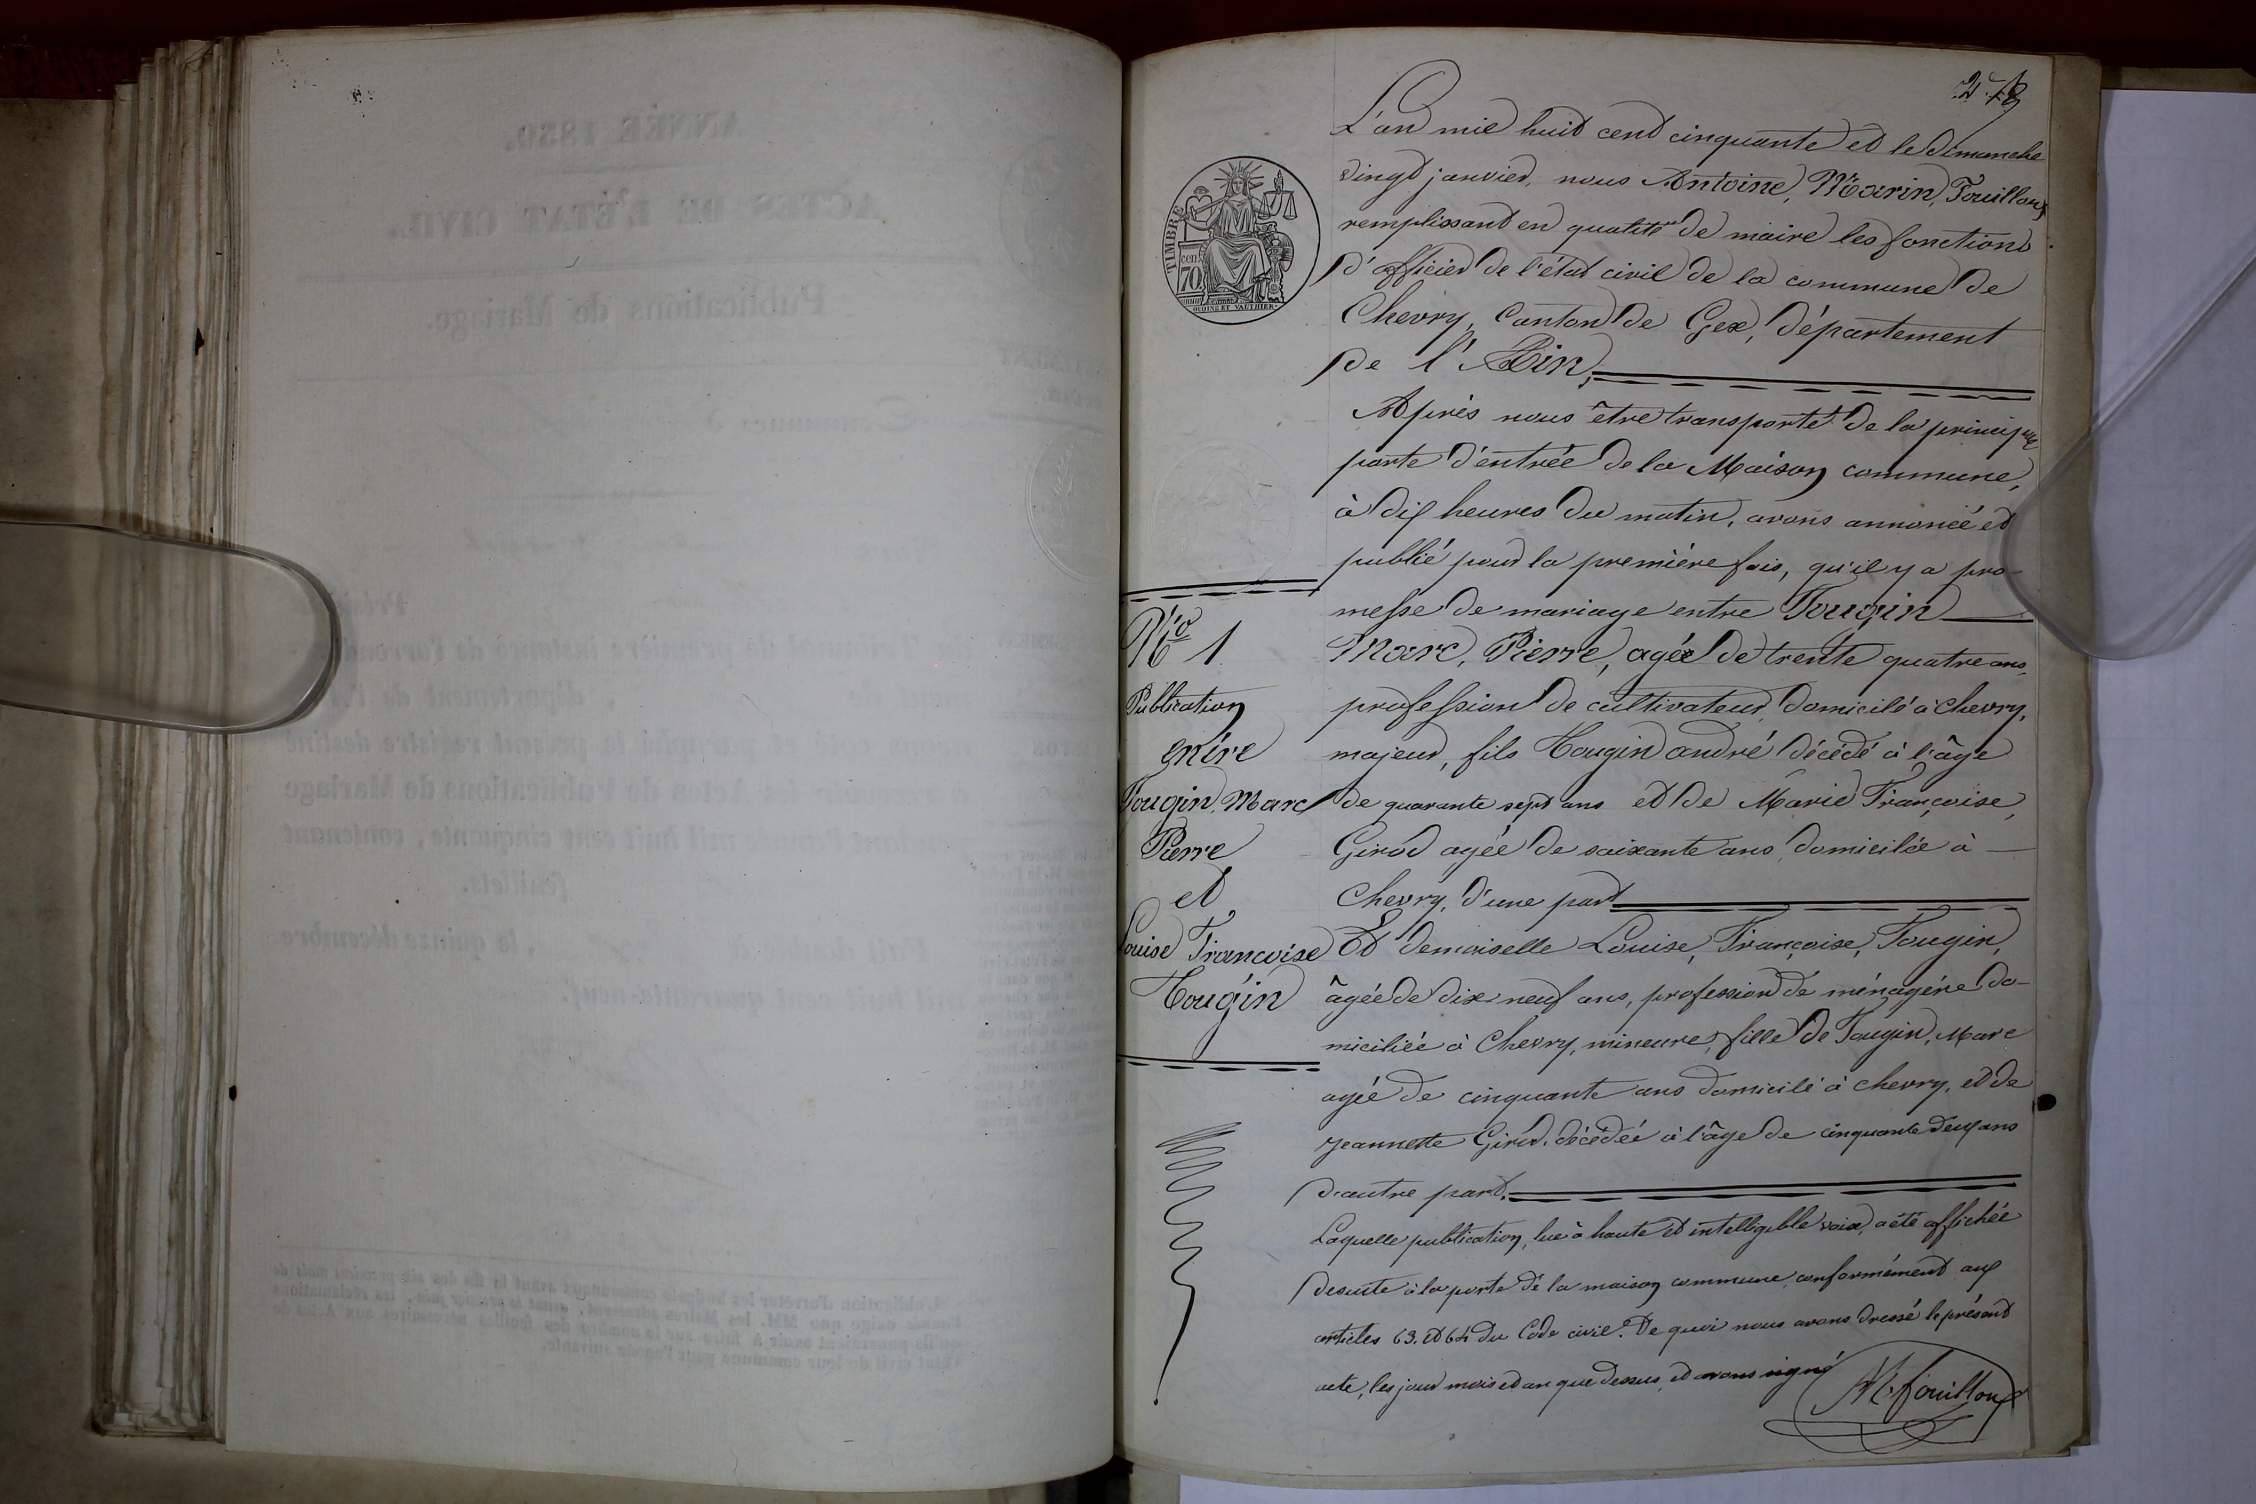 2 .f.
L'an mil huit cent cinquante et le dimanche
vingt janvier, nous Antoine, Marin, Fouilloux
remplissant en qualité de maire les fonctions
d'officier de l'état civil de la commune de
Chevry, Canton de Gex, département
de l'Ain,
TIMBRE
cen
70
OUDINE ET VAUTHIER
Après nous être transporté de la principale
porte d'entrée de la Maison commune,
à dix heures du matin, avons annoncé et
publié pour la première fois, qu'il y a pro-
messe de mariage entre Tougin
Marc, Pierre, agée de trente quatre ans,
profession de cultivateur domicilé à Chevry,
majeur, fils Tougin andré décédé à l'âge
de quarante sept ans et de Marie Françoise,
Girod agée de soixante ans domicilée à
Chevry, d'une part
Et demoiselle Louise, Françoise, Tougin,
âgée de dix neuf ans, profession de ménagère do-
miciliée à Chevry, mineure, fille de Tougin, Marc
agée de cinquante ans domicilé à chevry, et de
Jeannette Girod, décédée à l'âge de cinquante deux ans
d'autre part.
Laquelle publication, lue à haute et intelligible voix, a été affichée
desuite à la porte de la maison commune conformément aux
articles 63. et 64 du Code civil. De quoi nous avons dressé le présent
acte, les jour mois et an que dessus, et avons signé
M. fouilloux
No 1
Publication
entre
Tougin, Marc
Pierre
et
Louise Françoise
Tougin
ANNÉE 1850.
ACTES DE L'ÉTAT CIVIL.
Publications de Mariage.